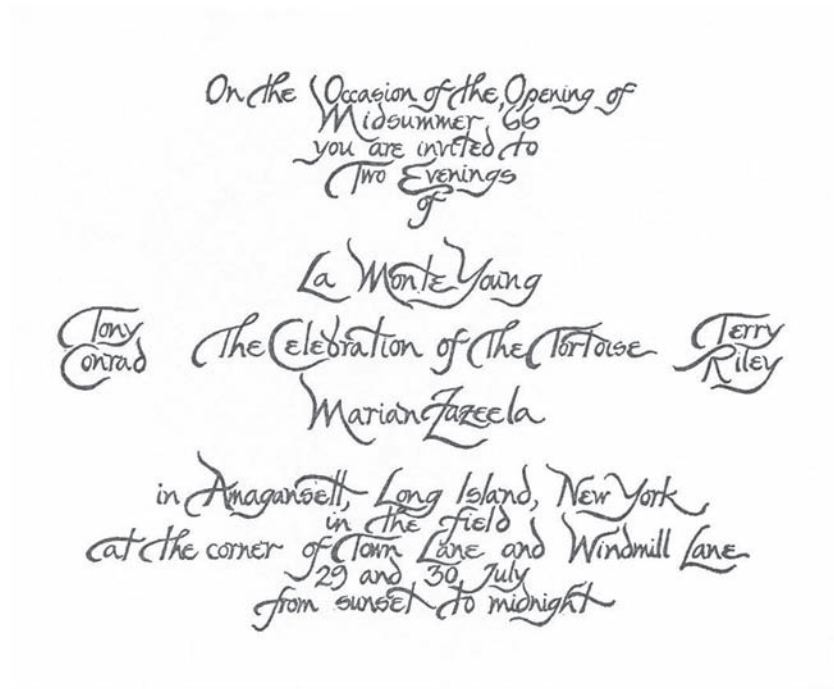 On the Occasion of the Opening of
Midsummer, 66
you are invited to
Two Evenings
of
La Monte Young
Tony
Conrad
The Celebration of The Tortoise
Terry
Riley
Marian Zazeela
in Amagansett, Long Island, New York
in the field
at the corner of Town Lane and Windmill Lane
29 and 30, July
from sunset to midnight